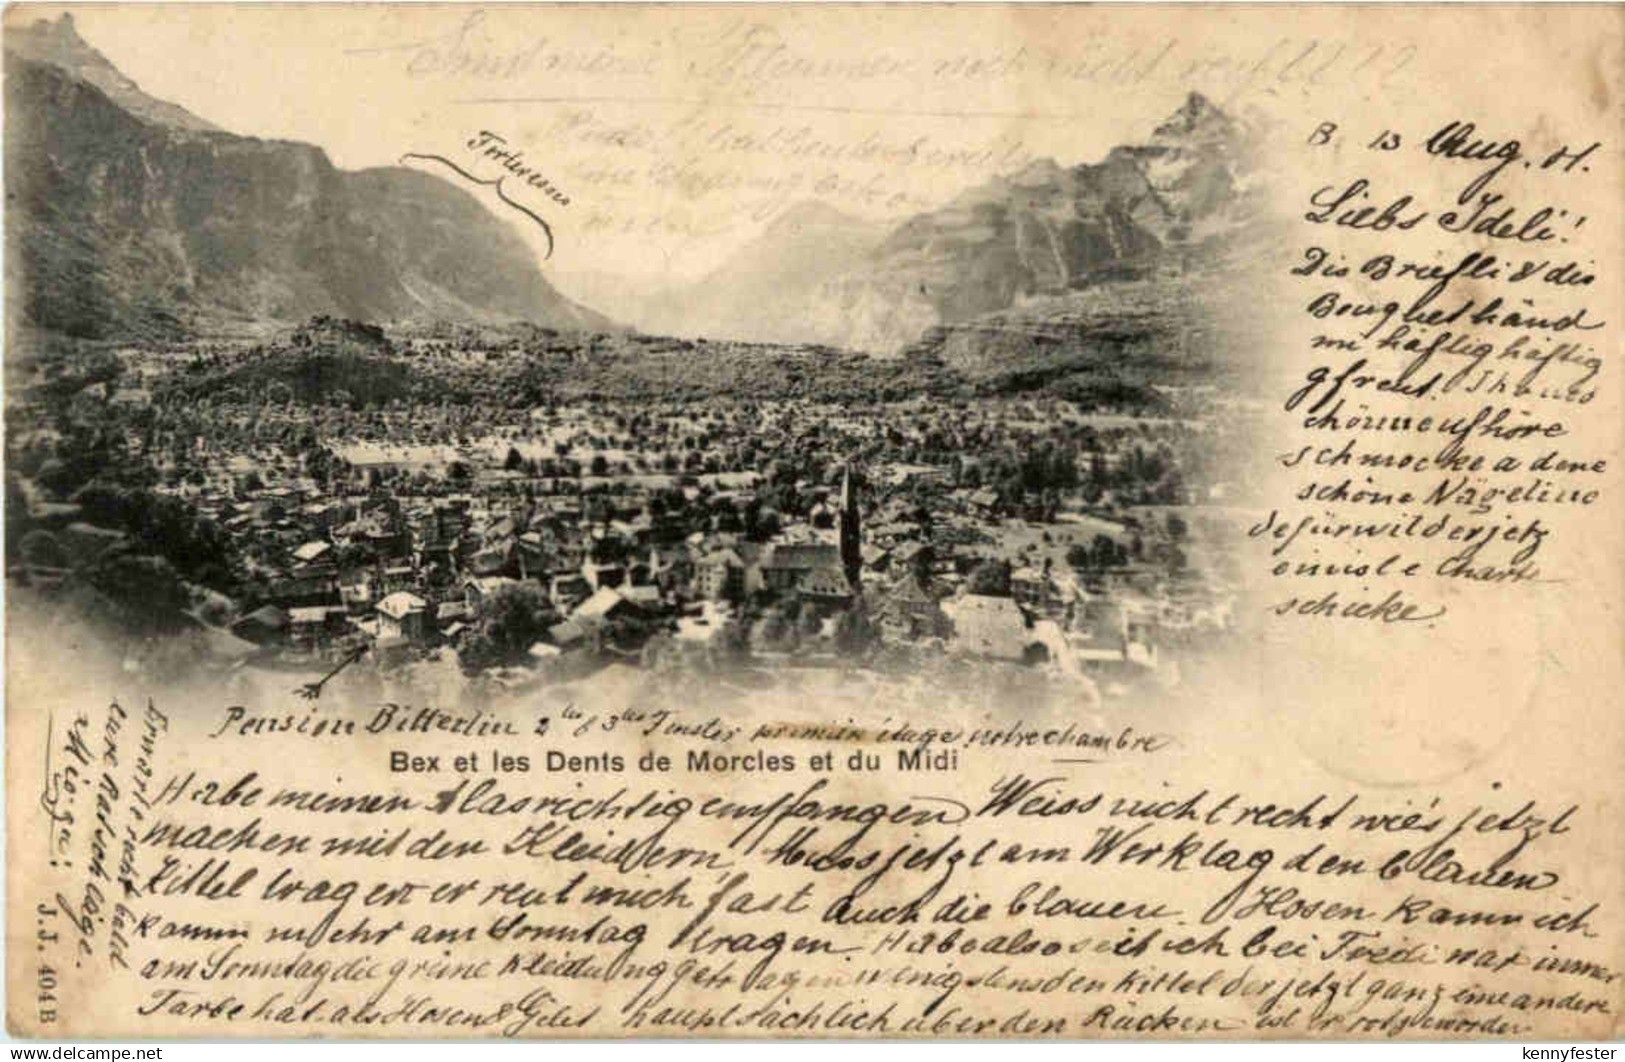 sind meine Blumen noch nicht
B. 13 Aug. 01.
Liebs Ideli!
Die Briefli & dis
Bouquet händ
mi häftig häftig
gfreut. I ha uf
chönne ufhöre
schmöcke a dene
schöne Nägeline
defür will der jetz
e Charte
schicke.
Pension Bitterlin 2tes & 3tes Fenster premier étage notre chambre
Bex et les Dents de Morcles et du Midi
Habe meinen Atlas richtig empfangen Weiss nicht recht wie's jetzt
machen mit den Kleidern, Muss jetzt am Werktag den blauen
Kittel tragen er reut mich fast Auch die blauen Hosen kann ich
kaum mehr am Sonntag tragen. Habe also seit ich bei Fredi war immer
am Sonntag die grüne Kleidung getragen, wenigstens den Kittel der jetzt ganz eine andere
Farbe hat als Hosen & Gilet hauptsächlich über den Rücken ist er rot geworden
Erwarte recht bald
eure Ratschläge.
J.J. 404 B
kennyfester